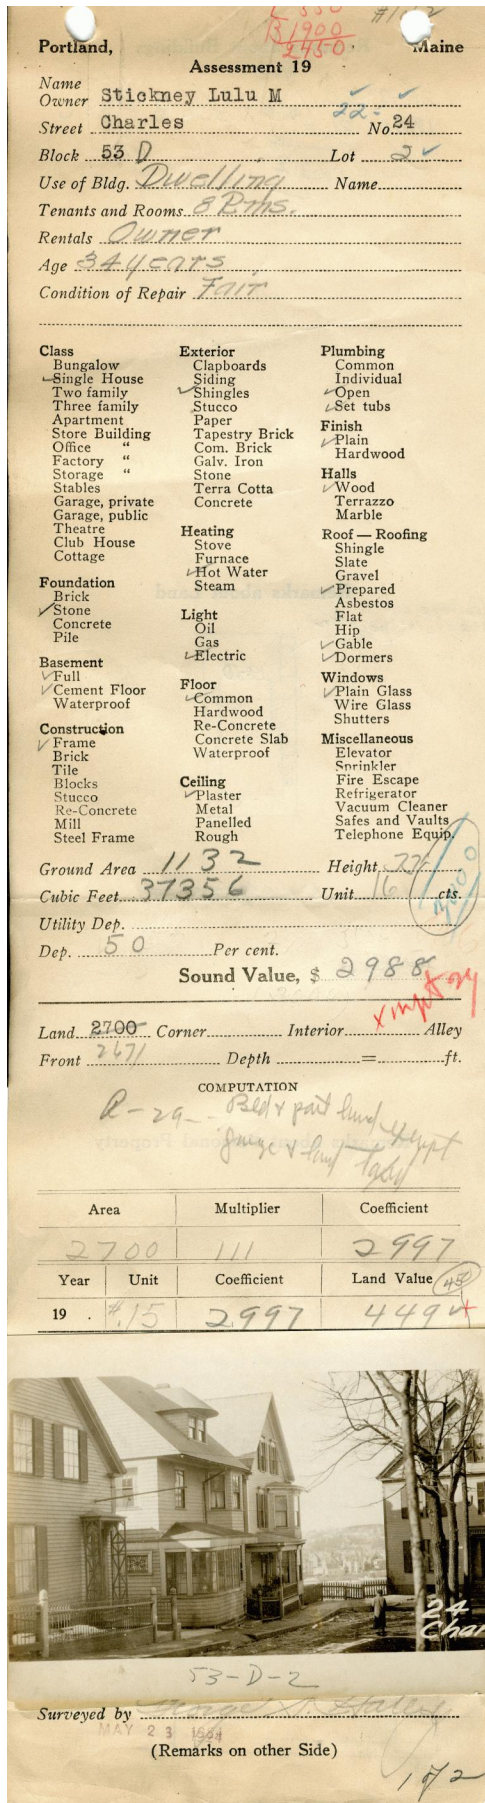 B 1900
2450
Portland, Maine
Assessment 19
Name
Owner Stickney Lulu M
22-
Street Charles No 24
Block 53 D Lot 2
Use of Bldg. Dwelling Name
Tenants and Rooms 8 Rms.
Rentals Owner
Age 34 years
Condition of Repair Fair
Class
Bungalow
Single House
Two family
Three family
Apartment
Store Building
Office "
Factory "
Storage "
Stables
Garage, private
Garage, public
Theatre
Club House
Cottage
Foundation
Brick
Stone
Concrete
Pile
Basement
Full
Cement Floor
Waterproof
Construction
Frame
Brick
Tile
Blocks
Stucco
Re-Concrete
Mill
Steel Frame
Exterior
Clapboards
Siding
Shingles
Stucco
Paper
Tapestry Brick
Com. Brick
Galv. Iron
Stone
Terra Cotta
Concrete
Heating
Stove
Furnace
Hot Water
Steam
Light
Oil
Gas
Electric
Floor
Common
Hardwood
Re-Concrete
Concrete Slab
Waterproof
Ceiling
Plaster
Metal
Panelled
Rough
Plumbing
Common
Individual
Open
Set tubs
Finish
Plain
Hardwood
Halls
Wood
Terrazzo
Marble
Roof — Roofing
Shingle
Slate
Gravel
Prepared
Asbestos
Flat
Hip
Gable
Dormers
Windows
Plain Glass
Wire Glass
Shutters
Miscellaneous
Elevator
Sprinkler
Fire Escape
Refrigerator
Vacuum Cleaner
Safes and Vaults
Telephone Equip.
Ground Area 1132 Height
Cubic Feet 37356 Unit 16 cts.
Utility Dep.
Dep. 50 Per cent.
Sound Value, $ 2988
Land 2700 Corner Interior Alley
Front 2671 Depth = ft.
COMPUTATION
Area Multiplier Coefficient
2700 111 2997
Year Unit Coefficient Land Value
19 . $.15 2997 449
24
Char
53-D-2
Surveyed by
MAY 23
(Remarks on other Side)
1 of 2